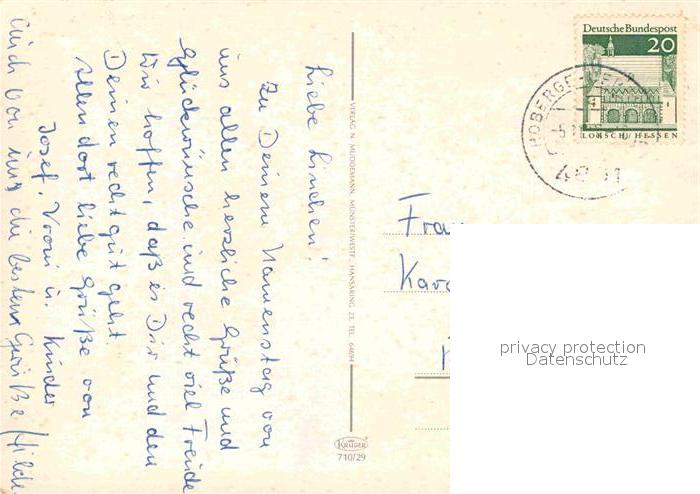 Liebe Linchen!
Zu Deinem Namenstag von
uns allen herzliche Grüße und
Glückwünsche und recht viel Freude
Wir hoffen, daß es Dir und den
Deinen recht gut geht.
Allen dort liebe Grüße von
Josef, Vroni u. Kinder
Auch von uns die besten Grüße
VERLAG N. MUDGEMANN, MÜNSTER/WESTF., HANSARING 23, TEL. 64894
KRÜGER
710/29
Deutsche Bundespost
20
LORSCH/HESSEN
Frau
privacy protection
Datenschutz